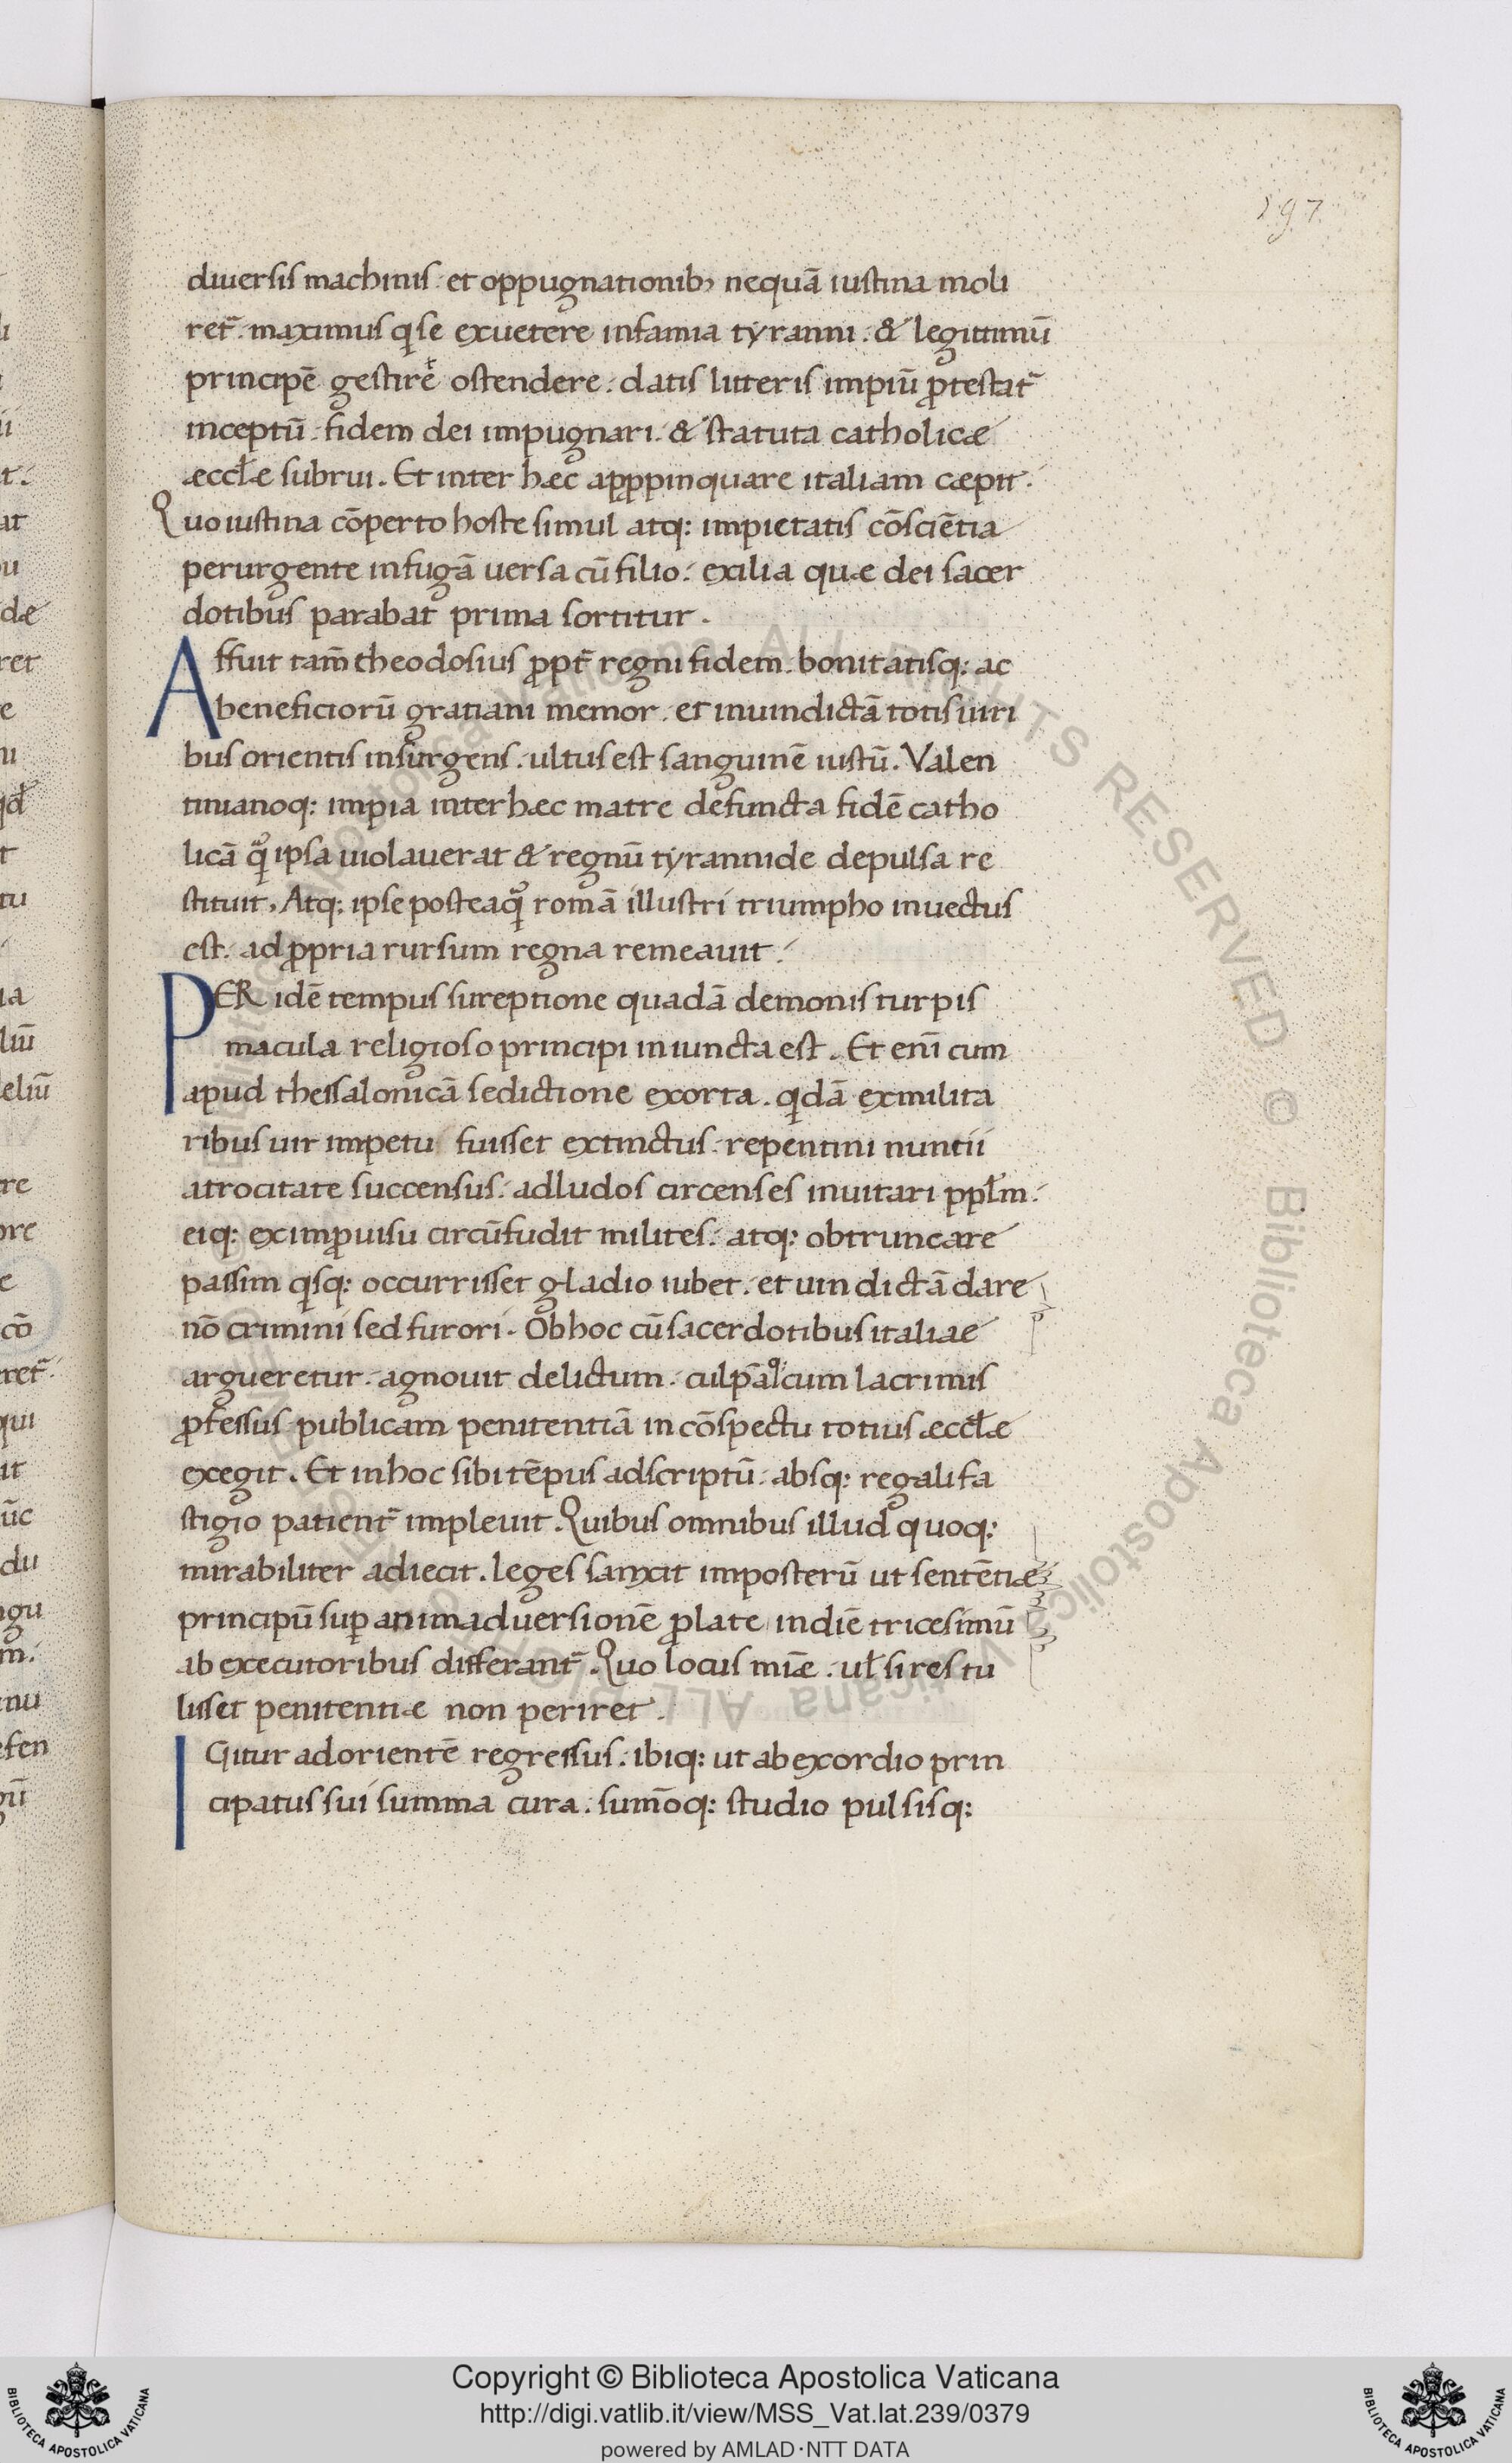 197
diuersis machinis et oppugnationib; nequā iustina moli
ret᷑. maximus qͥ se exuetere infamia tyranni. & legittimū
principē gestire ostendere. datis litteris impiū ꝓtestat᷑
inceptū. fidem dei impugnari. & statuta catholicæ
æccl̄æ subrui. Et inter hæc apꝓpinquare italiam cæpit.
Quo iustina cōperto hoste simul atq: impietatis cōsciētia
perurgente in fugā uersa cū filio. exilia quæ dei sacer
dotibus parabat prima sortitur.
Affuit tam̄ theodosius ꝓpt᷑ regni fidem. bonitatisq: ac
beneficiorū gratiani memor. et in uindictā totis uiri
bus orientis insurgens. ultus est sanguinē iustū. Valen
tinianoq: impia inter hæc matre defuncta fidē catho
licā qᷓ ipsa uiolauerat & regnū tyrannide depulsa re
stituit, Atq: ipse posteaqᷓ romā illustri triumpho inuectus
est. ad ꝓpria rursum regna remeauit.
PER idē tempus sureptione quadā demonis turpis
macula religioso principi iniuncta est. Et enī cum
apud thessalonicā sedictione exorta. qͥdā ex milita
ribus uir impetu fuisset extinctus. repentini nuntii
atrocitate succensus. ad ludos circenses inuitari ppl̄m.
eiq: ex imꝓuisu circūfudit milites. atq: obtruncare
passim qͥsq: occurrisset gladio iubet. et uindictā dare
nō crimini sed furori. Ob hoc cū sacerdotibus italiae
argueretur. agnouit delictum. culpāq: cum lacrimis
ꝓfessus publicam penitentiā in cōspectu totius æccl̄æ
exegit. Et in hoc sibi tēpus adscriptū. absq: regali fa
stigio patient᷑ impleuit. Quibus omnibus illud quoq:
mirabiliter adiecit. leges sanxit imposterū ut sentētiæ
principū suꝑ animaduersionē ꝓlate in diē tricesimū
ab executoribus differant᷑. Quo locus mīæ. ul̄ si res tu
lisset penitentiæ non periret.
IGitur ad orientē regressus. ibiq: ut ab exordio prin
cipatus sui summa cura. sum̄oq: studio pulsisq:
Copyright © Biblioteca Apostolica Vaticana
http://digi.vatlib.it/view/MSS_Vat.lat.239/0379
powered by AMLAD·NTT DATA